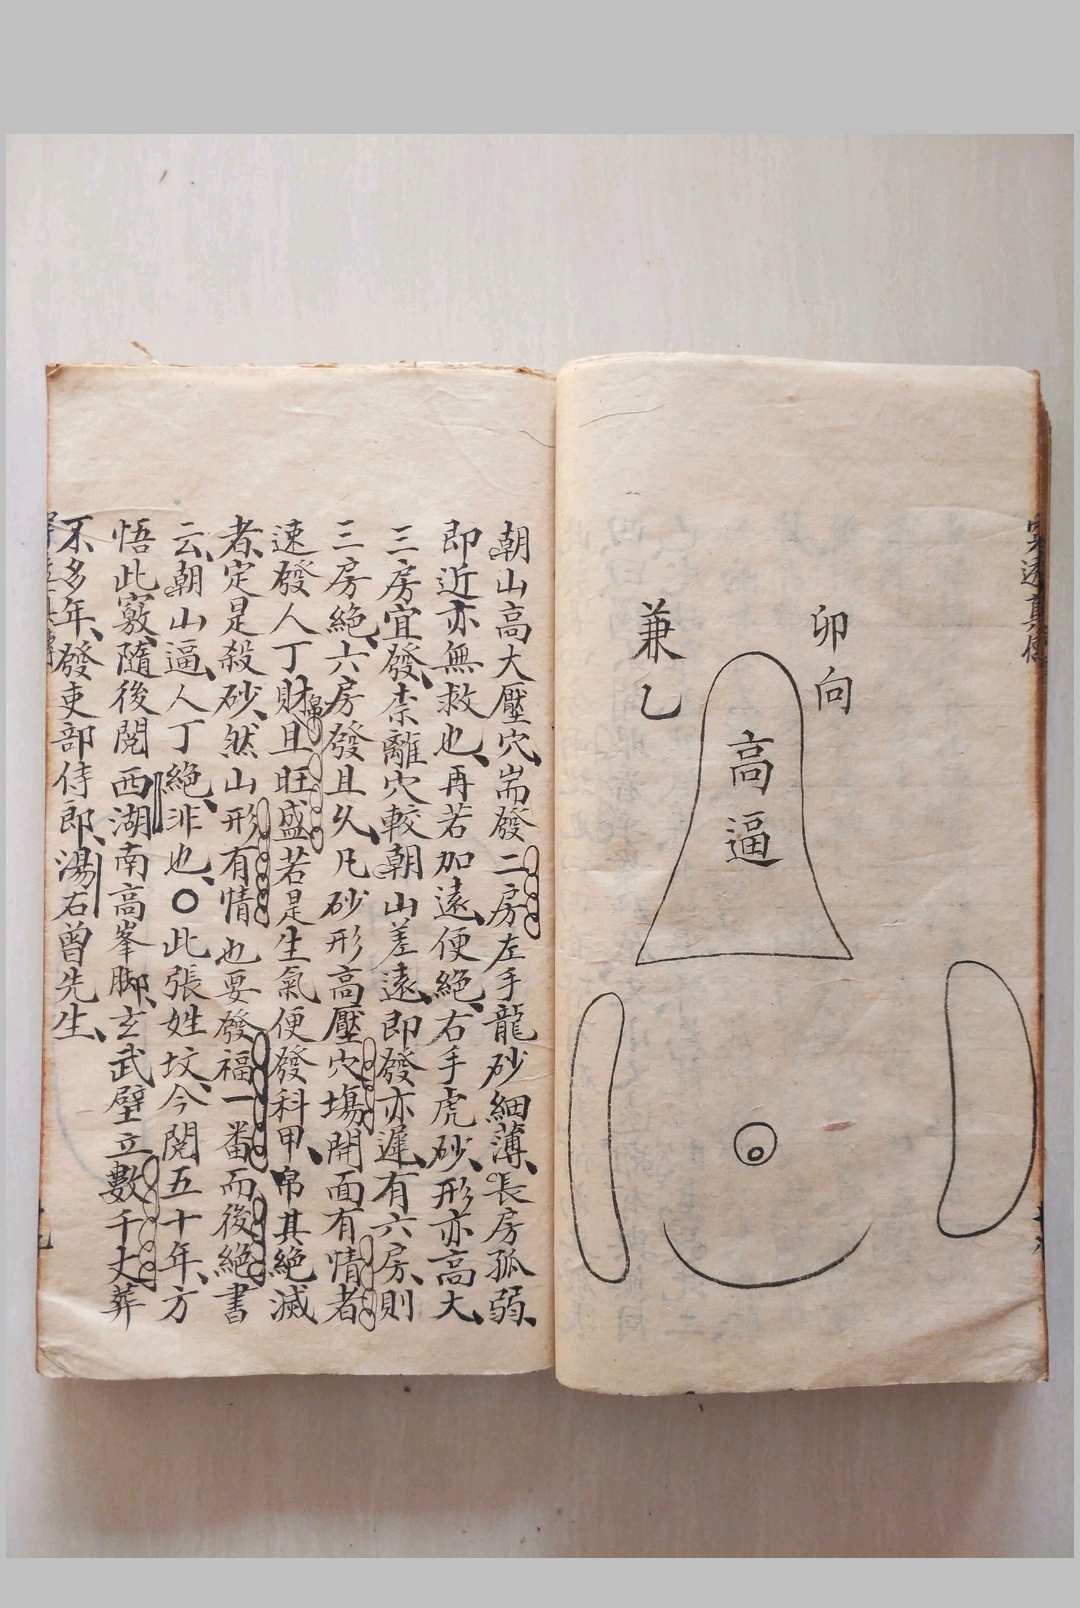 卯向
兼乙
高逼
朝山高大壓穴耑發二房左手龍砂細薄長房孤弱
即近亦無救也再若加遠便絕右手虎砂形亦高大
三房宜發柰離穴較朝山差遠即發亦遲有六房則
三房絕六房發且久凡砂形高壓穴塲開面有情者
速發人丁財且旺盛若是生氣便發科甲帛其絕滅
者定是殺砂然山形有情也要發福一畨而後絕書
云朝山逼人丁絕非也〇此張姓坟今閱五十年方
悟此竅隨後閱西湖南高峯脚玄武壁立數千丈葬
不多年發吏部侍郎湯石曾先生